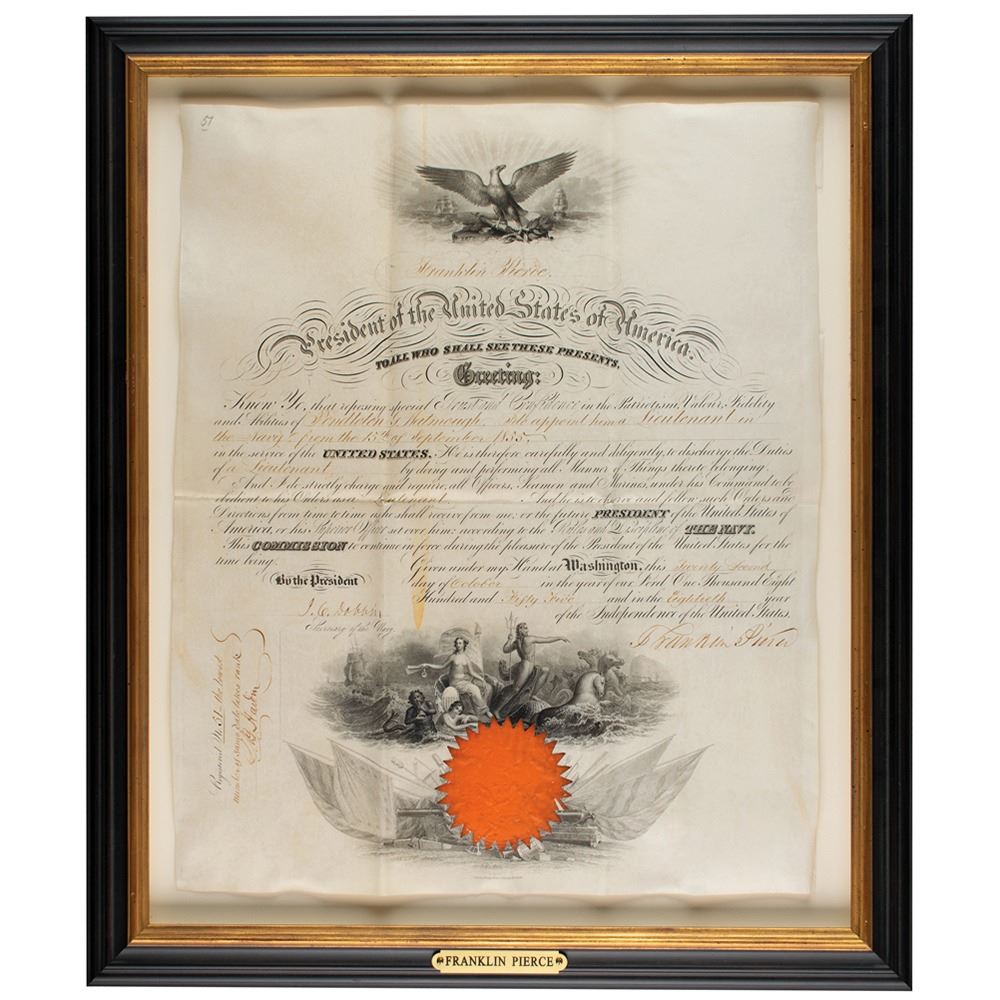 51
Franklin Pierce.
President of the United States of America.
TO ALL WHO SHALL SEE THESE PRESENTS,
Greeting:
Know Ye, that reposing special Trust and Confidence in the Patriotism, Valour, Fidelity
and Abilities of Pendleton G. Watmough, I do appoint him a Lieutenant in
the Navy from the 15th of September 1855,
in the service of the UNITED STATES. He is therefore carefully and diligently, to discharge the Duties
of a Lieutenant by doing and performing all Manner of Things thereto belonging.
And I do strictly charge and require, all Officers, Seamen and Marines, under his Command to be
obedient to his Orders as a Lieutenant And he is to observe and follow, such Orders and
Directions from time to time as he shall receive from me, or the future PRESIDENT of the United States of
America, or his Superior Officer set over him; according to the Rules and Discipline of THE NAVY.
This COMMISSION to continue in force during the pleasure of the President of the United States for the
time being.
Given under my Hand at Washington, this Twenty Second
By the President
day of October in the year of our Lord One Thousand Eight
Hundred and Fifty Five and in the Eightieth year
of the Independence of the United States.
J. C. Dobbin
Secretary of the Navy.
Franklin Pierce
Registered No. 51 the lowest
number of same date takes rank
FRANKLIN PIERCE